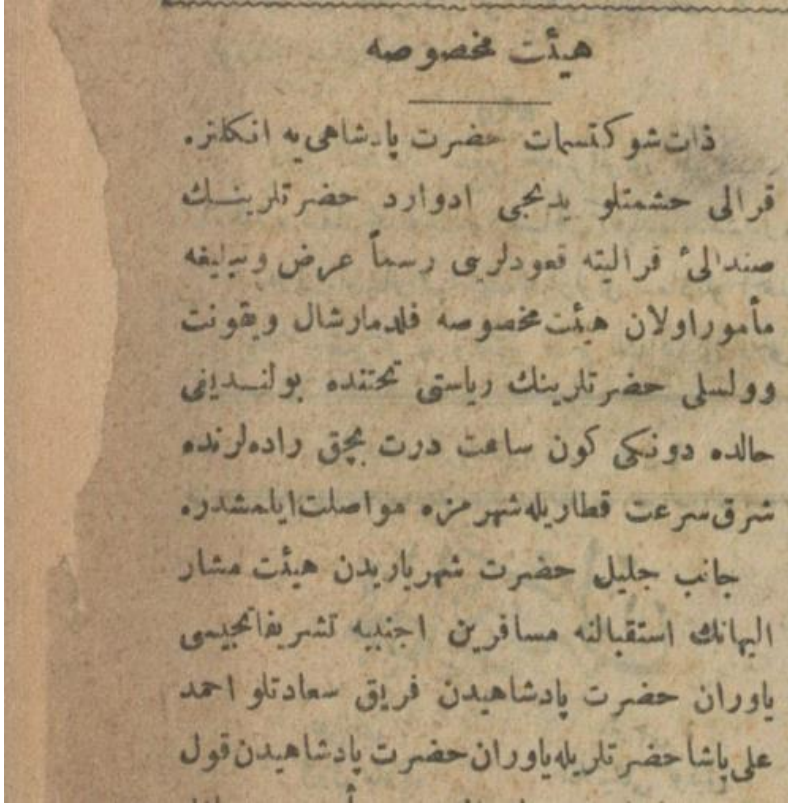 هيئت مخصوصه
ذات شوكتسمات حضرت پادشاهى يه انكلتره
قرالى حشمتلو يدنجى ادوارد حضرتلرينك
صندالىٔ قراليته قعودلرينى رسماً عرض وتبليغه
مأمور اولان هيئت مخصوصه فلدمارشال ويقونت
وولسلى حضرتلرينك رياستى تحتنده بولنديغى
حالده دونكى كون ساعت درت بچق راده لرنده
شرق سرعت قطاريله شهرمزه مواصلت ايلمشدر.
جانب جليل حضرت شهرياريدن هيئت مشار
اليهانك استقبالنه مسافرين اجنبيه تشريفاتجيسى
ياوران حضرت پادشاهيدن فريق سعادتلو احمد
على پاشا حضرتلريله ياوران حضرت پادشاهيدن قول